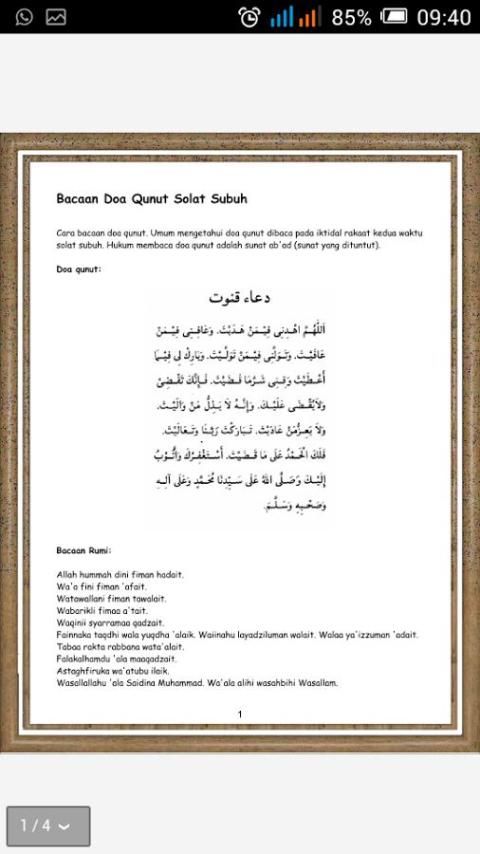 85% 09:40
Bacaan Doa Qunut Solat Subuh
Cara bacaan doa qunut. Umum mengetahui doa qunut dibaca pada iktidal rakaat kedua waktu
solat subuh. Hukum membaca doa qunut adalah sunat ab'ad (sunat yang dituntut).
Doa qunut:
دعاء قنوت
اَللّٰهُمَّ اهْدِنِى فِيْمَنْ هَدَيْتَ. وَعَافِنِى فِيْمَنْ
عَافَيْتَ. وَتَوَلَّنِى فِيْمَنْ تَوَلَّيْتَ. وَبَارِكْ لِى فِيْمَا
أَعْطَيْتَ وَقِنِى شَرَّمَا قَضَيْتَ. فَإِنَّكَ تَقْضِىْ
وَلَايُقْضَى عَلَيْكَ. وَإِنَّهُ لَا يَذِلُّ مَنْ وَالَيْتَ.
وَلَا يَعِزُّمَنْ عَادَيْتَ. تَبَارَكْتَ رَبَّنَا وَتَعَالَيْتَ.
فَلَكَ الْحَمْدُ عَلَى مَا قَضَيْتَ. أَسْتَغْفِرُكَ وَأَتُوْبُ
إِلَيْكَ وَصَلَّى اللهُ عَلَى سَيِّدِنَا مُحَمَّدٍ وَعَلَى آلِهِ
وَصَحْبِهِ وَسَلَّمَ.
Bacaan Rumi:
Allah hummah dini fiman hadait.
Wa'a fini fiman 'afait.
Watawallani fiman tawalait.
Wabarikli fimaa a'tait.
Waqinii syarramaa qadzait.
Fainnaka taqdhi wala yuqdha 'alaik. Waiinahu layadziluman walait. Walaa ya'izzuman 'adait.
Tabaa rakta rabbana wata'alait.
Falakalhamdu 'ala maaqadzait.
Astaghfiruka wa'atubu ilaik.
Wasallallahu 'ala Saidina Muhammad. Wa'ala alihi wasahbihi Wasallam.
1
1 / 4